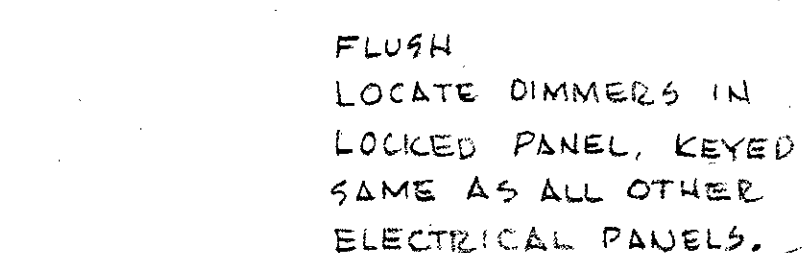 FLUSH
LOCATE DIMMERS IN
LOCKED PANEL, KEYED
SAME AS ALL OTHER
ELECTRICAL PANELS.